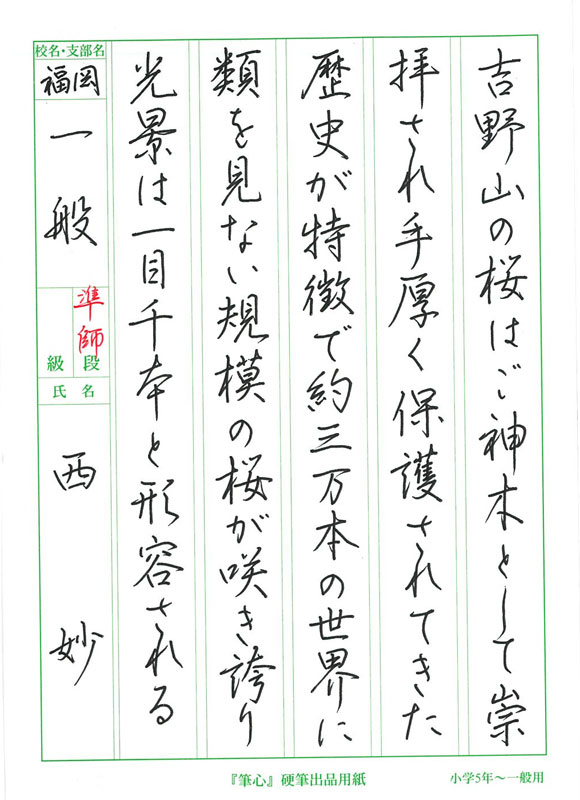 吉野山の桜はご神木として崇
拝され手厚く保護されてきた
歴史が特徴で約三万本の世界に
類を見ない規模の桜が咲き誇り
光景は一目千本と形容される
校名・支部名
福岡
一般
準師
級 段
氏名
西 妙
『筆心』硬筆出品用紙
小学5年～一般用